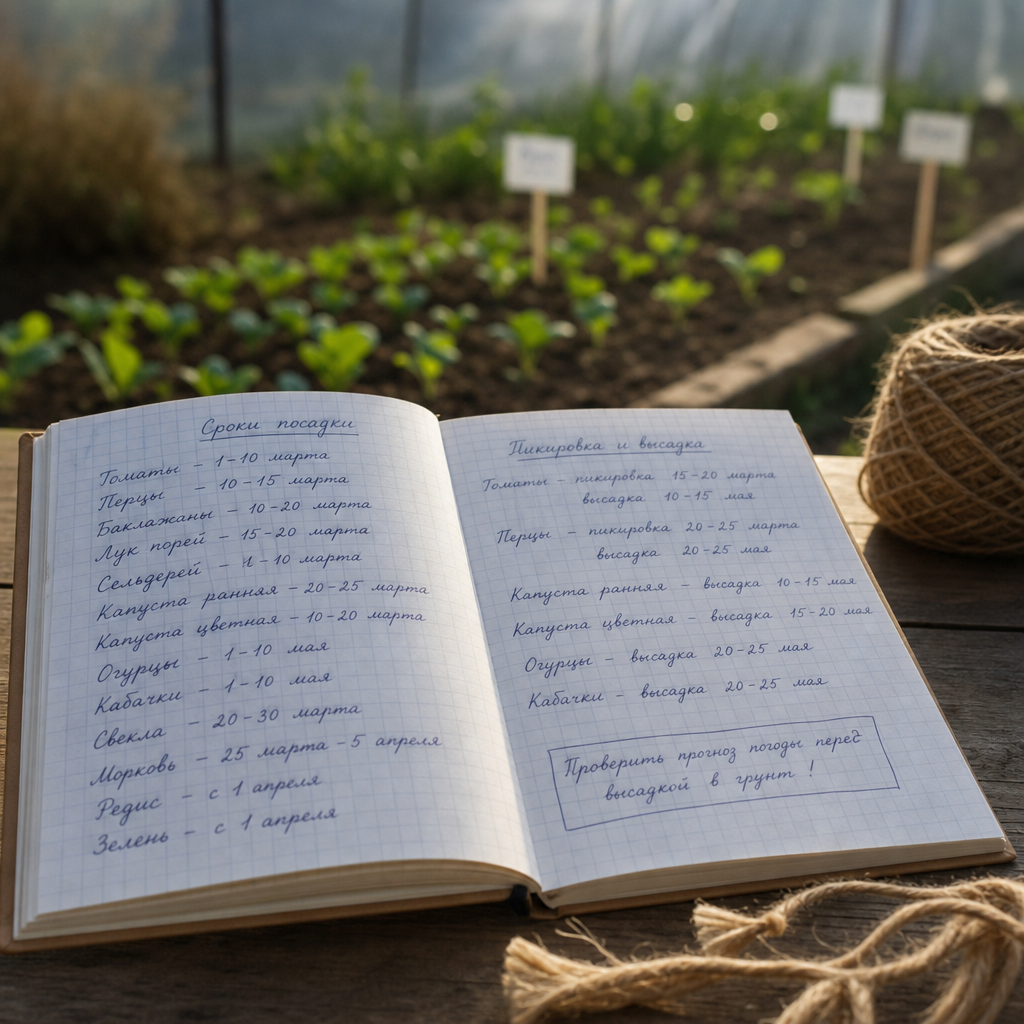 Сроки посадки
Томаты – 1-10 марта
Перцы – 10-15 марта
Баклажаны – 10-20 марта
Лук порей – 15-20 марта
Сельдерей – 1-10 марта
Капуста ранняя – 20-25 марта
Капуста цветная – 10-20 марта
Огурцы – 1-10 мая
Кабачки – 1-10 мая
Свекла – 20-30 марта
Морковь – 25 марта - 5 апреля
Редис – с 1 апреля
Зелень – с 1 апреля
Пикировка и высадка
Томаты – пикировка 15-20 марта
высадка 10-15 мая
Перцы – пикировка 20-25 марта
высадка 20-25 мая
Капуста ранняя – высадка 10-15 мая
Капуста цветная – высадка 15-20 мая
Огурцы – высадка 20-25 мая
Кабачки – высадка 20-25 мая
Проверить прогноз погоды перед
высадкой в грунт !